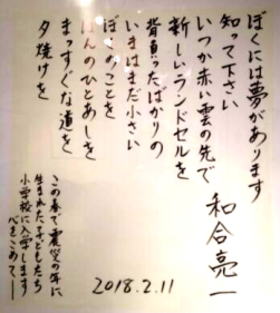 ぼくには夢があります
知って下さい
いつか赤い雲の先で
新しいランドセルを
背負ったばかりの
いまはまだ小さい
ぼくのことを
ほんのひとあしを
まっすぐな道を
夕焼けを
和合亮一
この春で震災の年に
生まれた子どもたち
小学校に入学します
2018.2.11